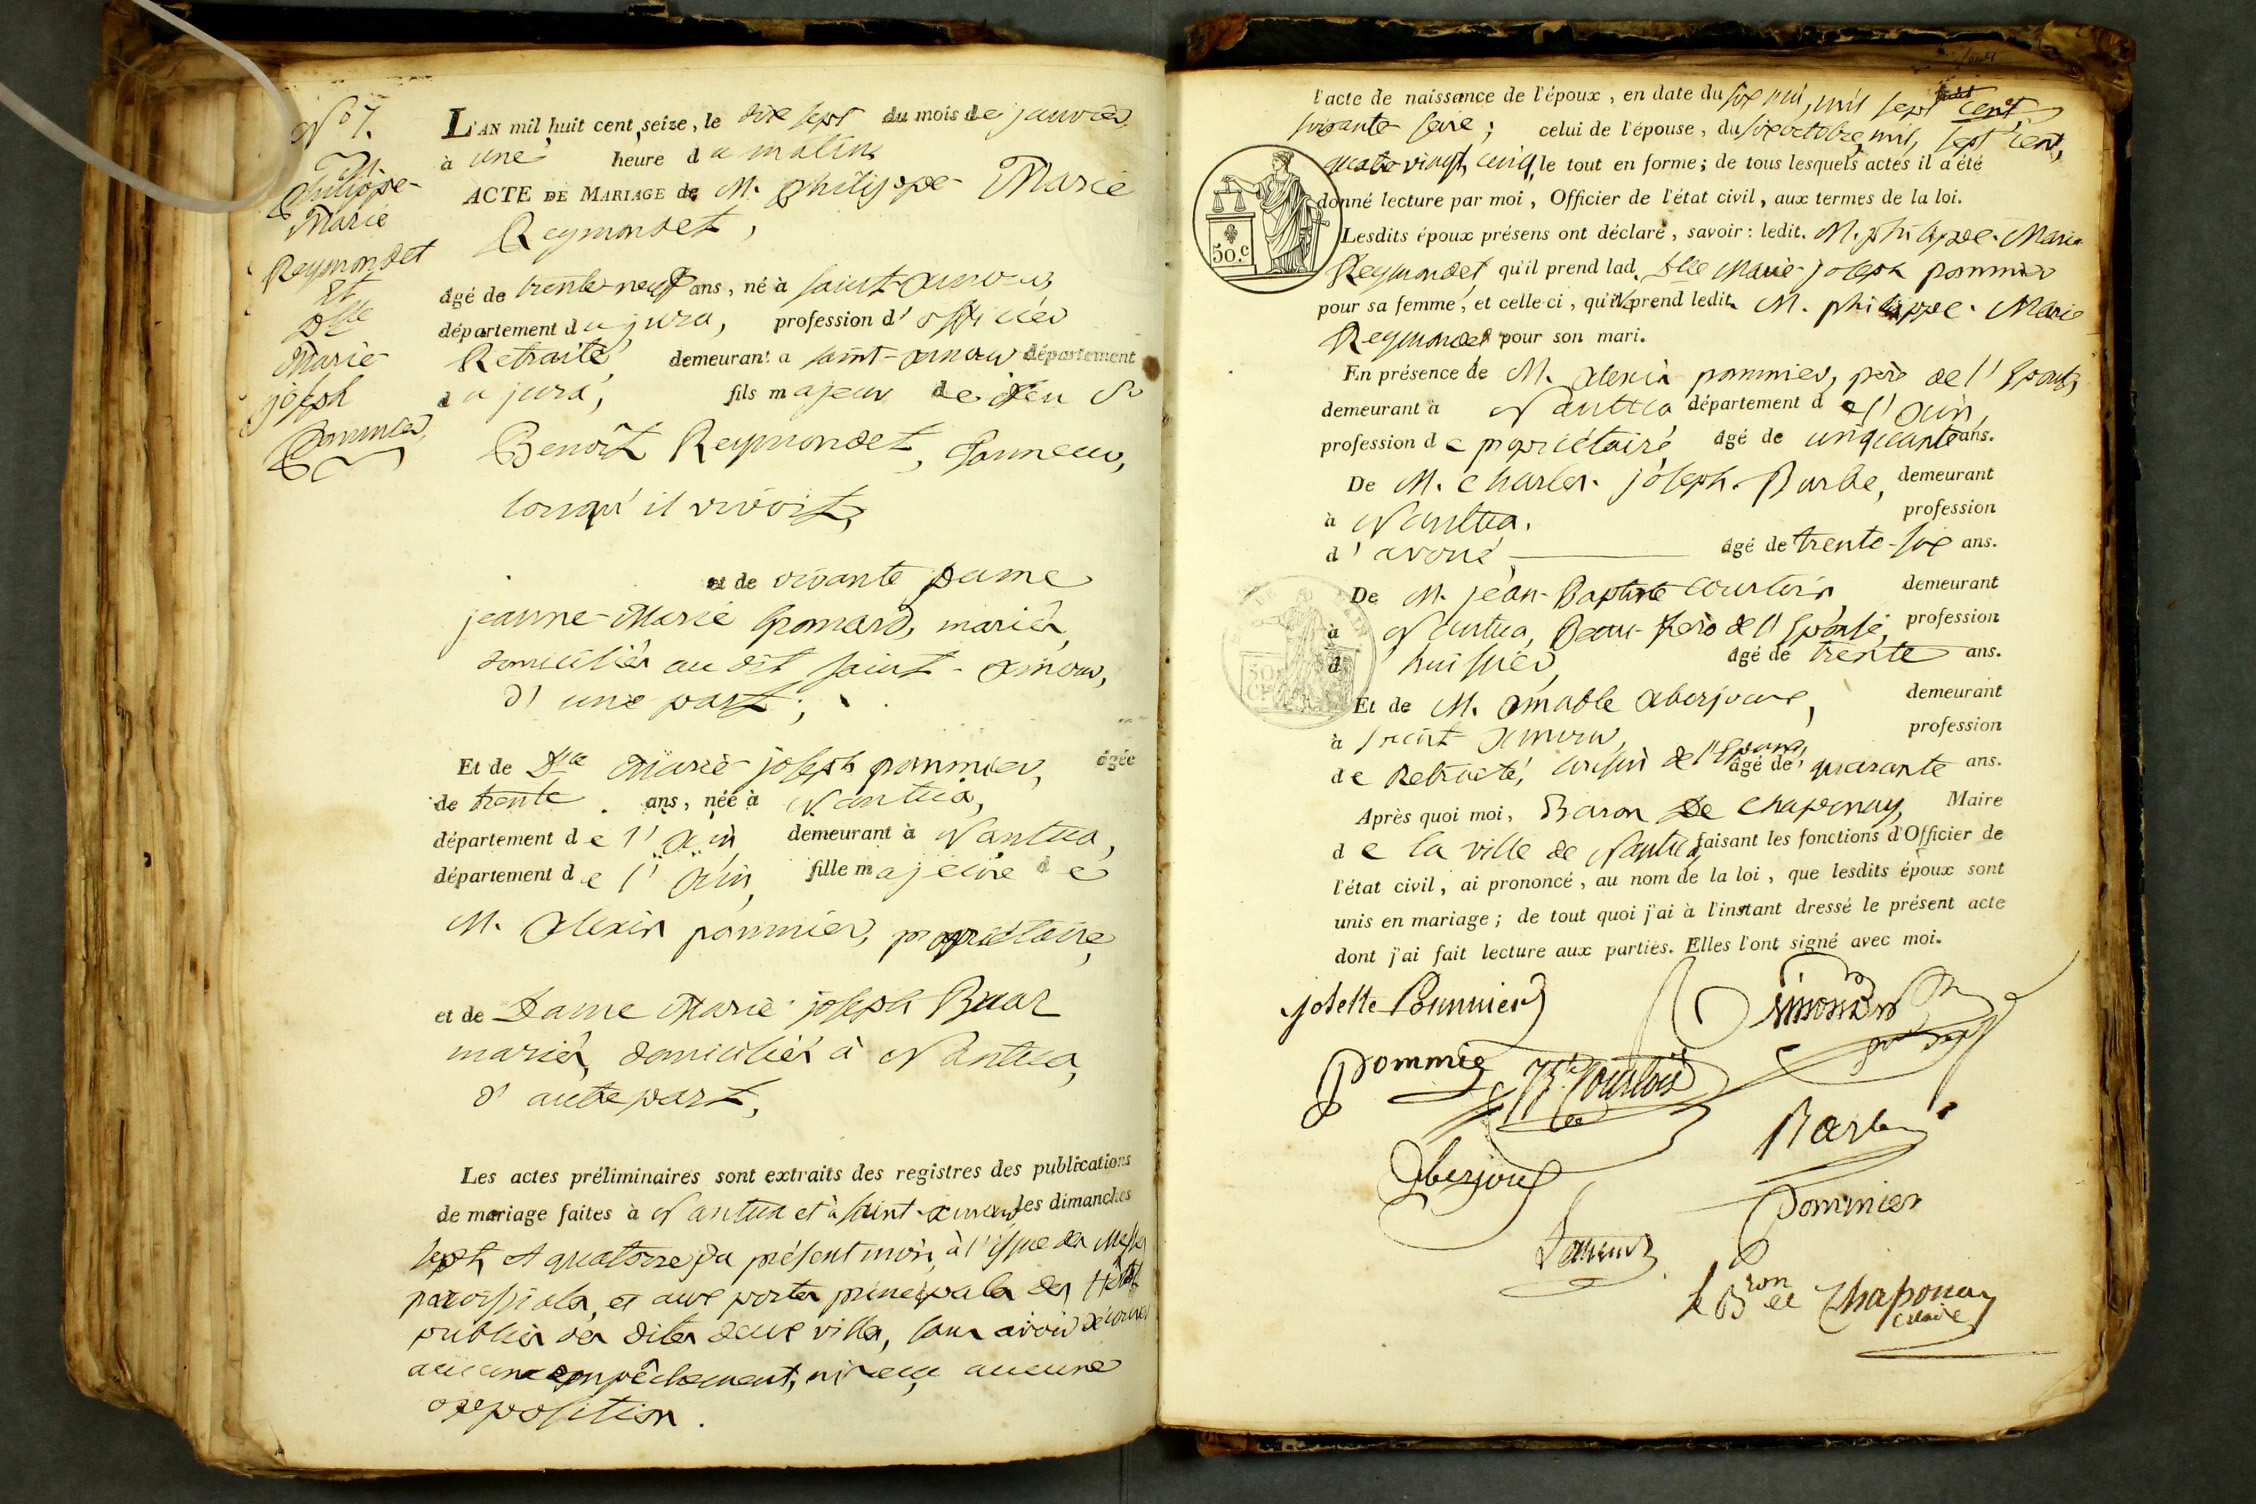 N° 7.
M.
Philippe-
Marie
Reymondet
et
Dlle
Marie-
joseph
Pommier
L'AN mil huit cent seize, le dix sept du mois de janvier
à une heure du matin
ACTE DE MARIAGE de M. philippe- Marie
Reymondet,
âgé de trente-neuf ans, né à saint-amour
département du jura, profession d'officier
Retraité, demeurant a saint-amour département
du jura, fils majeur de feu Sr
Benoît Reymondet, Tanneur,
lorsqu'il vivoit,
et de vivante Dame
jeanne-Marie Gromard, mariés,
domiciliés au dit saint-amour,
d'une part;
Et de Dlle Marie-joseph pommier, âgée
de trente ans, née à Nantua,
département de l'ain demeurant à Nantua,
département de l'ain, fille majeure de
M. alexis pommier, propriétaire,
et de Dame Marie-joseph Buat
mariés, domiciliés à Nantua,
d'autre part,
Les actes préliminaires sont extraits des registres des publications
de mariage faites à Nantua et à saint-amour les dimanches
sept et quatorze du présent mois, à l'issue des Messes
paroissiales, et aux portes principales des
publics des dites deux villes, sans avoir découvert
aucun empêchement, ni reçu aucune
opposition.
l'acte de naissance de l'époux, en date du six mai, mil sept cent
soixante seize; celui de l'épouse, du six octobre, mil, sept cent,
quatre vingt, cinq, le tout en forme; de tous lesquels actes il a été
donné lecture par moi, Officier de l'état civil, aux termes de la loi.
50.c
Lesdits époux présens ont déclaré, savoir: ledit. M. philippe-Marie
Reymondet qu'il prend lad. Dlle Marie-joseph pommier
pour sa femme, et celle ci, qu'il prend ledit. M. philippe-Marie
Reymondet pour son mari.
En présence de M. alexis pommier, père de l'Epouse,
demeurant à Nantua département de l'ain,
profession de propriétaire, âgé de cinquante ans.
De M. charles-joseph-Barbe, demeurant
à Nantua. profession
d'avoué, âgé de trente-six ans.
De M. jean-Baptiste courtois demeurant
à Nantua, Beau-frère de l'Epouse, profession
d huissier, âgé de trente ans.
Et de M. amable aberjoux, demeurant
à saint amour, profession
de Retraité, cousin de l'Epoux, âgé de quarante ans.
Après quoi moi, Baron De chaponay, Maire
de la ville de Nantua, faisant les fonctions d'Officier de
l'état civil, ai prononcé, au nom de la loi, que lesdits époux sont
unis en mariage; de tout quoi j'ai à l'instant dressé le présent acte
dont j'ai fait lecture aux parties. Elles l'ont signé avec moi.
josette Pommier
pommier
Jh Bte Courtois
Barbe
aberjoux
Pommier
le Bron de Chaponay
maire